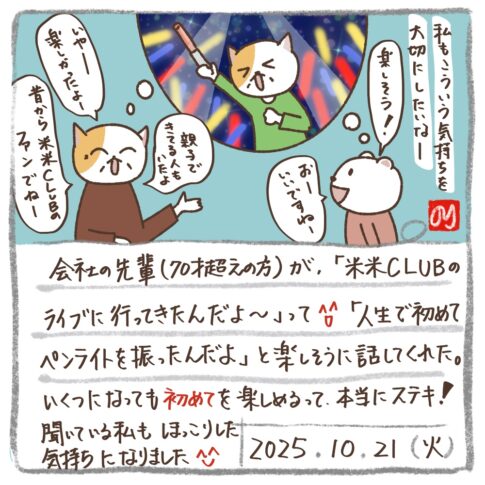 いやー
楽しかったよ、
昔から米米CLUBの
ファンでねー
親子で
きてる人も
いたよ
楽しそう！
おー
いいですねー
私もこういう気持ちを
大切にしたいなー
会社の先輩(70才超えの方)が、「米米CLUBの
ライブに行ってきたんだよ〜」って^^「人生で初めて
ペンライトを振ったんだよ」と楽しそうに話してくれた。
いくつになっても初めてを楽しめるって、本当にステキ！
聞いている私もほっこりした
気持ちになりました^^
2025.10.21(火)